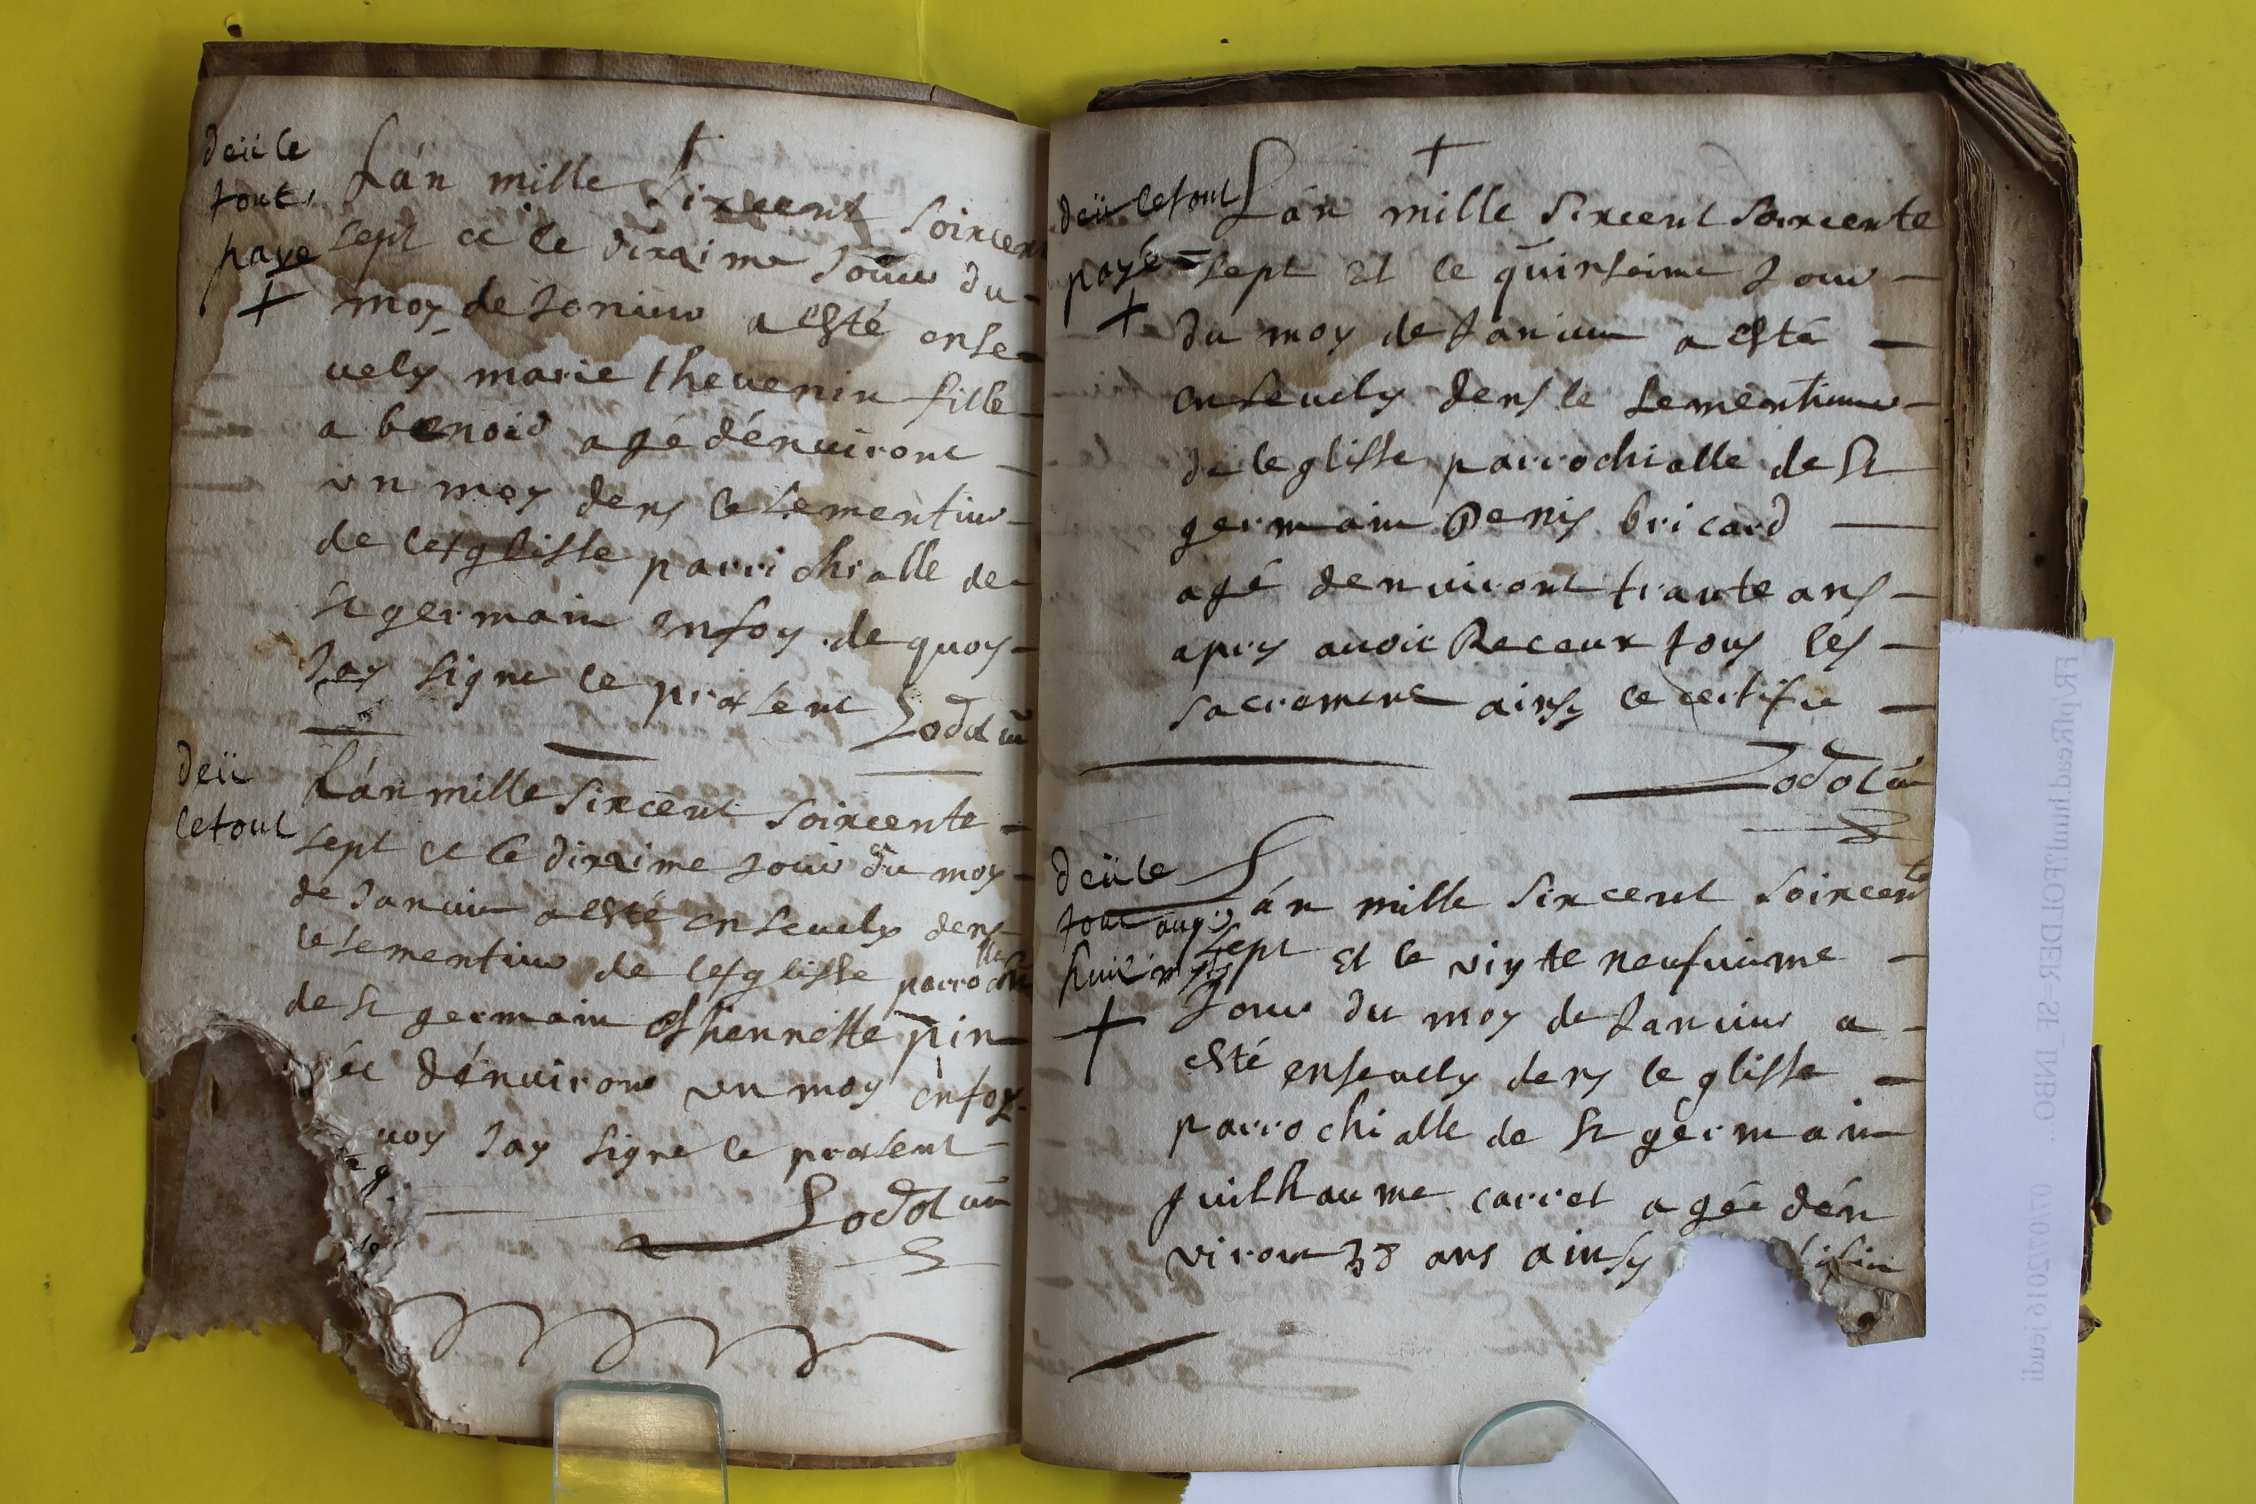 deü le
tout
paye
+
Lán mille sixcent soixcent
sept et le dixaime Jour du
moy de Janvier a esté ense
vely marie thevenin fille
a benoid agé dénviront
un moy dens le sementiere
de lesglisse parrichialle de
St germain enfoy de quoy
Jay signe le present Lodot
deü
letout
Lán mille sixcent soixcente
sept et le dixaime Jour du moy
de Janvier a esté ensevely dens
le sementiere de lesglisse parrochialle
de St germain hennette pin
ée dénviront un moy enfoy
quoy Jay signe le present
Lodot
+
deü letout
payé
+
Lán mille sixcent soixcente
sept et le quinseime Jour
du moy de Janvier a esté
ensevely dens le sementiere
de leglisse parrochialle de St
germain Denis bricard
agé denviront trante ans
apres avoir Receux tous les
sacrement ainsy le certifie
Lodot
deü le
tout
huit
+
Lán mille sixcent soixcente
sept et le vingte neufvieme
Jour du moy de Janvier a
esté ensevely dens leglisse
parrochialle de St germain
guilhaume carret agée dén
viront 38 ans ainsy